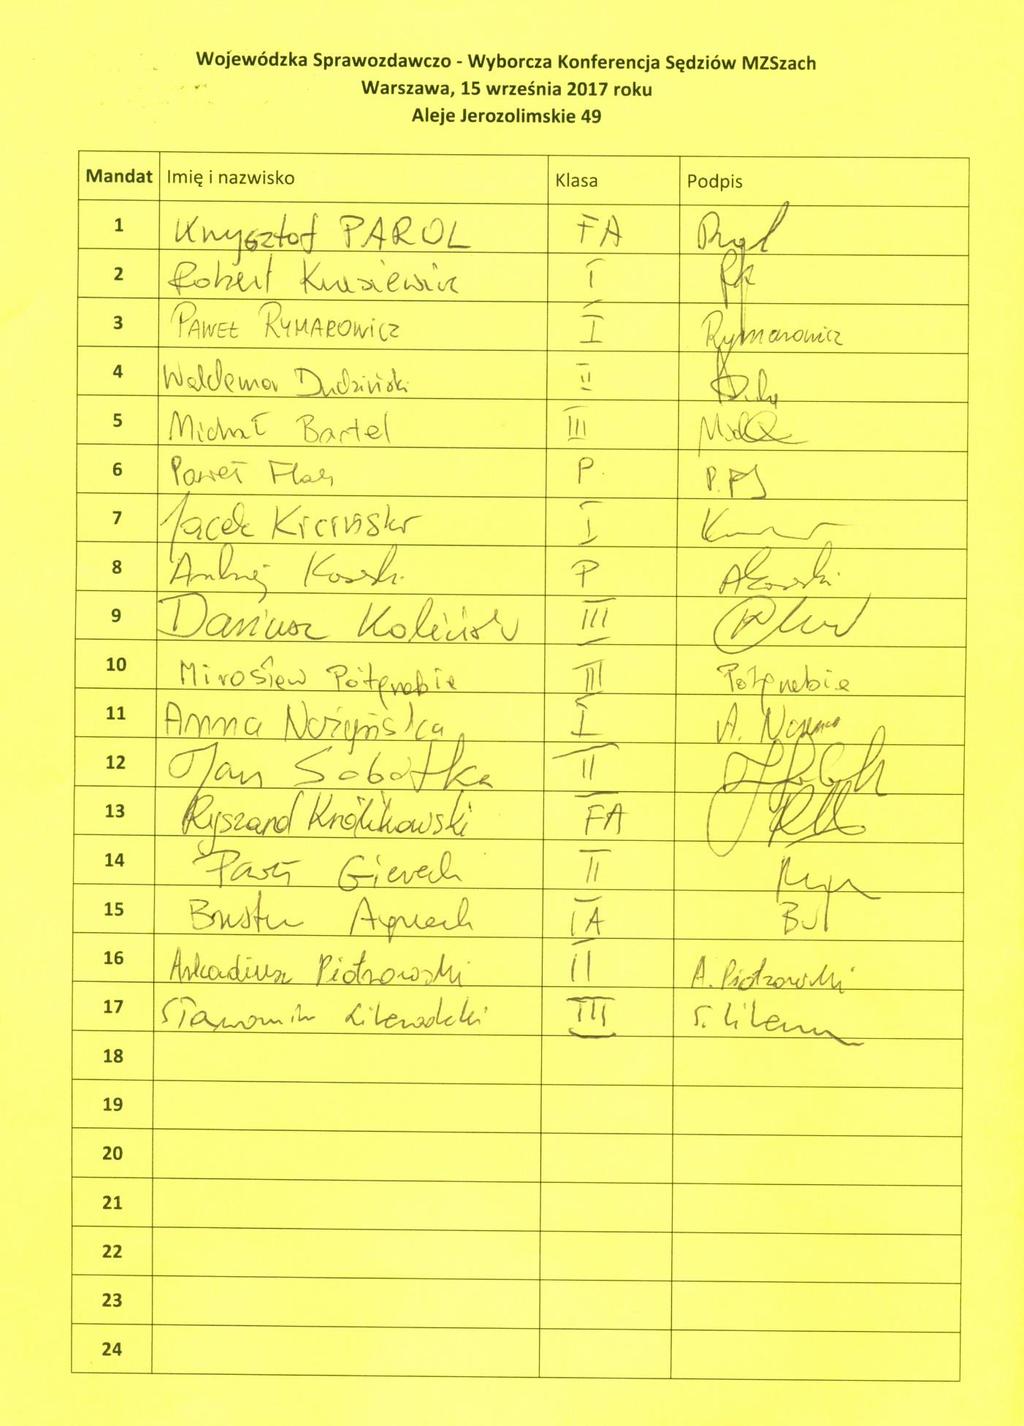 Wojewódzka Sprawozdawczo - Wyborcza Konferencja Sędziów MZSzach
Warszawa, 15 września 2017 roku
Aleje Jerozolimskie 49
Mandat Imię i nazwisko Klasa Podpis
1 Krzysztof PAROL FA
2 Robert I
3 PAWEŁ RYMAROWICZ I Rymarowicz
4 Waldemar Dudziński II
5 Michał Bartel III
6 Paweł P.
7 Jacek I
8 Andrzej P
9 Dariusz Koliński III
10 Mirosław Półgrabie III Półgrabie
11 Anna Nożyńska I A.
12 Jan Sobotka II
13 Ryszard Królikowski FA
14 Gierech II
15 IA
16 Arkadiusz Piotrowski II A. Piotrowski
17 Sławomir III S.
18
19
20
21
22
23
24